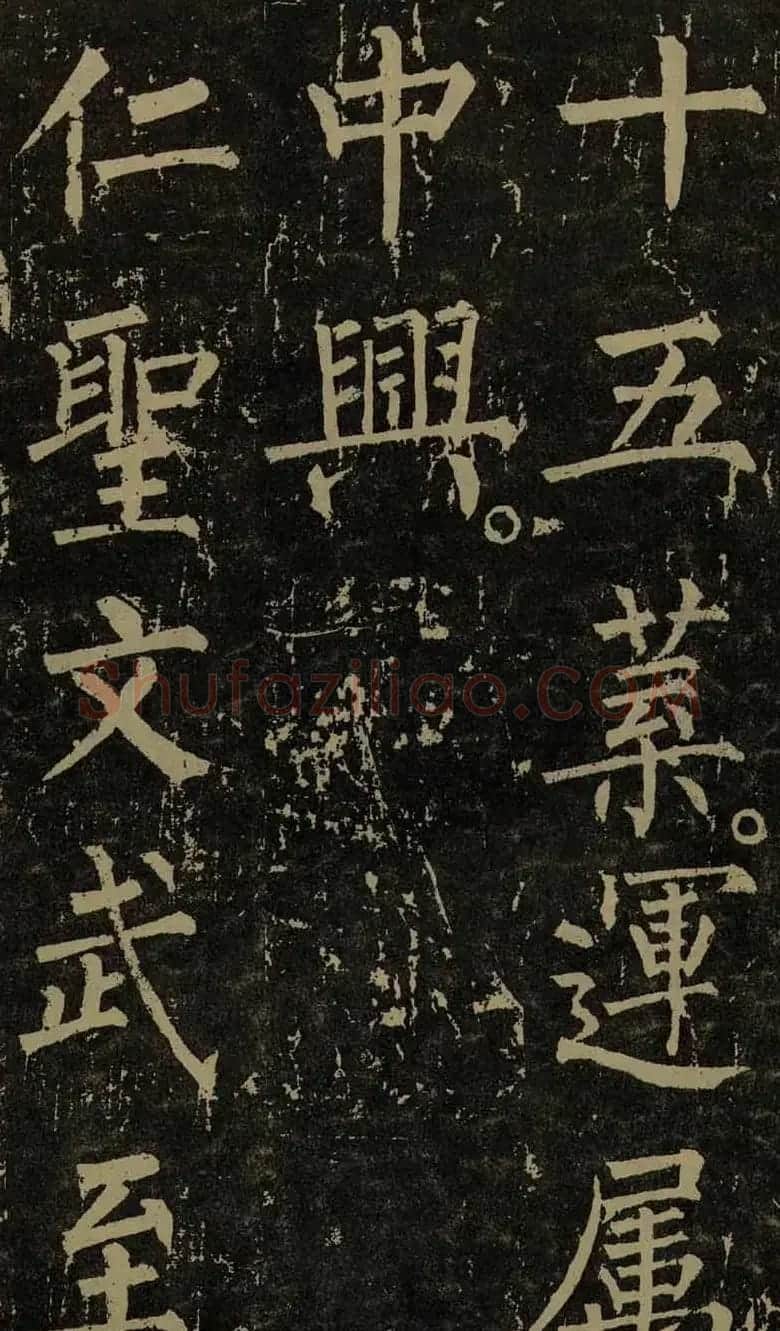 十五葉。運属
中興。
仁聖文武至
Shufaziliao.COM